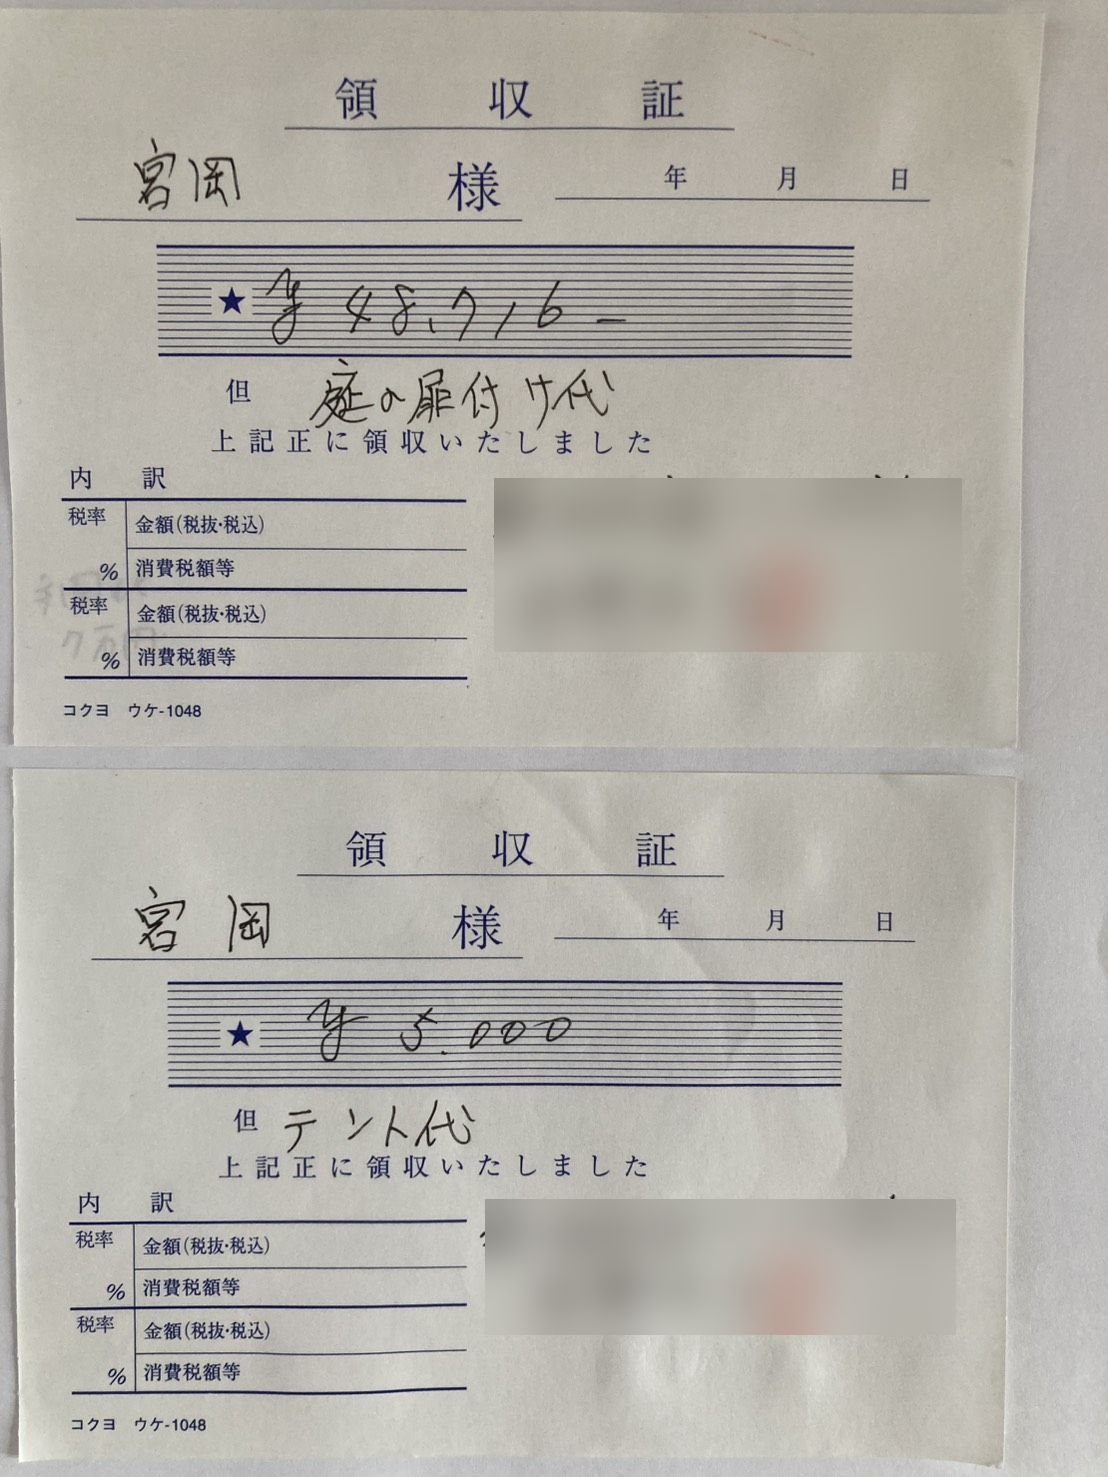 領収証
宮岡 様 年 月 日
★ ¥48,716-
但 庭の扉付け代
上記正に領収いたしました
内訳
税率 金額(税抜・税込)
% 消費税額等
税率 金額(税抜・税込)
% 消費税額等
コクヨ ウケ-1048
領収証
宮岡 様 年 月 日
★ ¥5.000
但 テント代
上記正に領収いたしました
内訳
税率 金額(税抜・税込)
% 消費税額等
税率 金額(税抜・税込)
% 消費税額等
コクヨ ウケ-1048